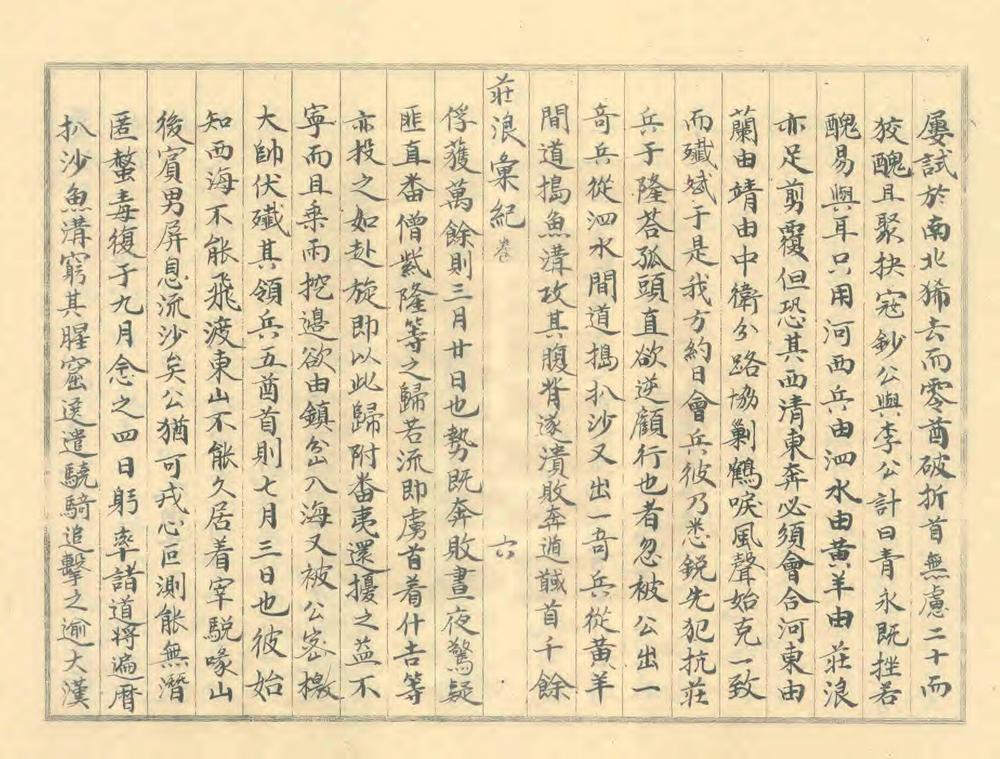 屢試於南北狶去而零酋破折首無慮二十而
狡醜且聚抉寇鈔公與李公計曰青永既挫若
醜易與耳只用河西兵由泗水由黃羊由莊浪
亦足剪覆但恐其西清東奔必須會合河東由
蘭由靖由中衛分路協剿鶴唳風聲始克一致
而殲㱥于是我方約日會兵彼乃悉銳先犯抗莊
兵于隆荅孤頭直欲逆顧行也者忽被公出一
奇兵從泗水間道搗扒沙又出一奇兵從黃羊
間道搗魚溝攻其腹背遂潰敗奔遁馘首千餘
莊浪彙紀 卷 六
俘獲萬餘則三月廿日也勢既奔敗晝夜驚疑
匪直畨僧紫隆等之歸若流即虜首着什吉等
亦投之如赴旋即以此歸附畨夷還擾之益不
寧而且乘雨挖邊欲由鎮岔入海又被公密檄
大帥伏殲其領兵五酋首則七月三日也彼始
知西海不能飛渡東山不能久居着宰駾喙山
後賓男屏息流沙矣公猶可戎心叵測能無潛
匿螫毒復于九月念之四日躬率諸道將遍曆
扒沙魚溝窮其腥窟遂遣驍騎追擊之逾大漢